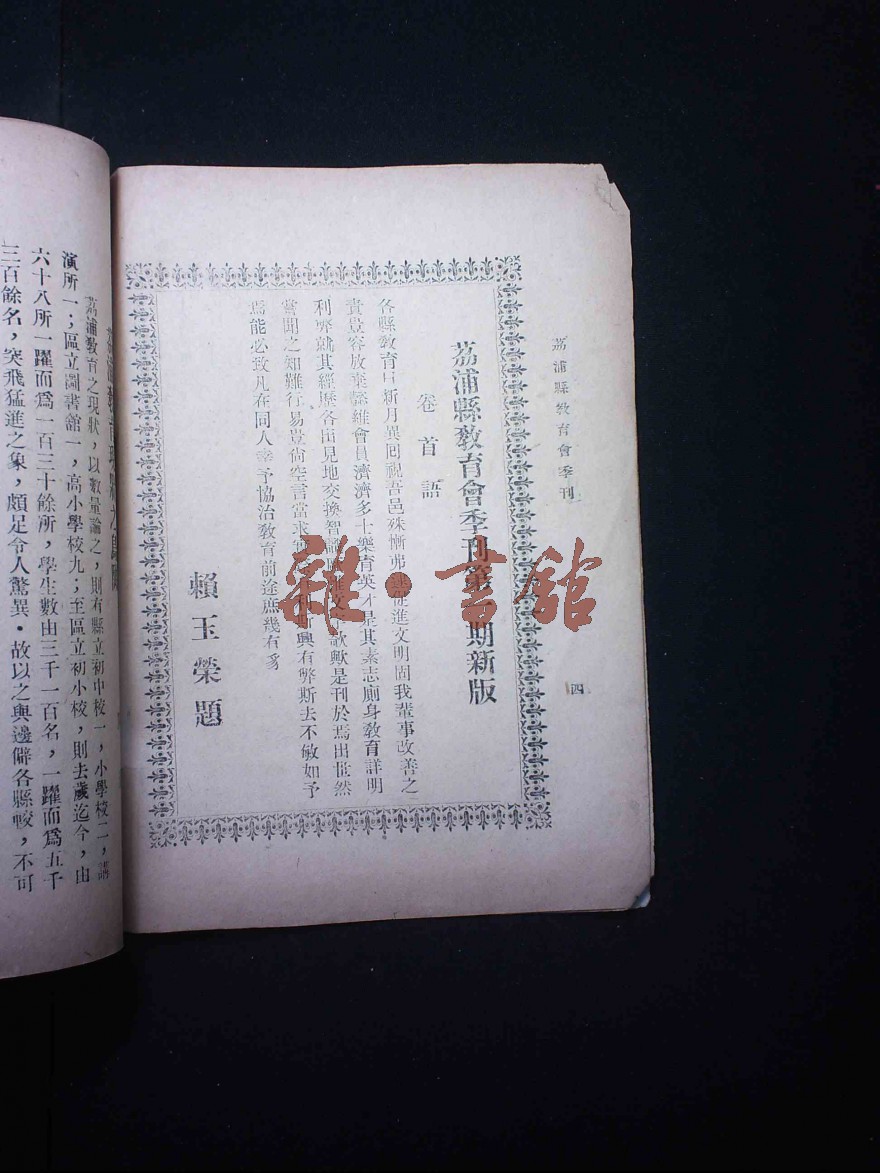 荔浦縣教育會季刊
四
荔浦縣教育會季刊第 期新版
卷首語
各縣教育日新月異回視吾邑殊慚弗逮促進文明固我輩事改善之
責豈容放棄 維會員濟濟多士樂育英才是其素志廁身教育詳明
利弊就其經歷各出見地交換智識 歟歟是刊於焉出世然
嘗聞之知難行易豈尙空言當求 利 興有弊斯去不敏如予
焉能必致凡在同人幸予協治教育前途庶幾有豸
賴玉榮題
雜·書館
荔浦教育現狀之
荔浦敎育之現狀，以數量論之，則有縣立初中校一，小學校二，講
演所一；區立圖書舘一，高小學校九；至區立初小校，則去歲迄今，由
六十八所一躍而爲一百三十餘所，學生數由三千一百名，一躍而爲五千
三百餘名，突飛猛進之象，頗足令人驚異·故以之與邊僻各縣較，不可